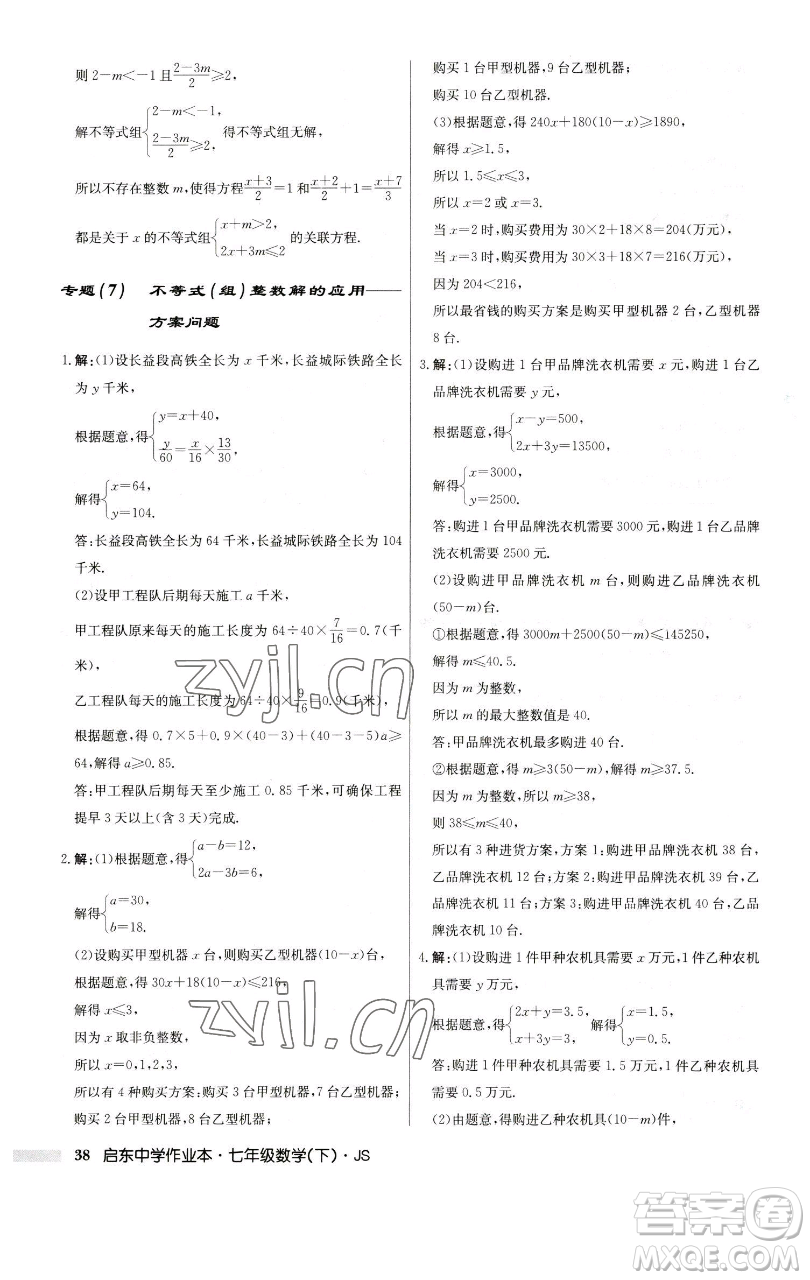 则 2－m＜－1 且(2－3m)/2≥2,
解不等式组{2－m＜－1, (2－3m)/2≥2, 得不等式组无解,
所以不存在整数 m,使得方程(x＋3)/2＝1 和(x＋2)/2＋1＝(x＋7)/3
都是关于 x 的不等式组{x＋m＞2, 2x＋3m≤2 的关联方程.
专题(7) 不等式(组)整数解的应用——
方案问题
1.解:(1)设长益段高铁全长为 x 千米,长益城际铁路全长
为 y 千米,
根据题意,得{y＝x＋40, y/60＝x/16×13/30,
解得{x＝64, y＝104.
答:长益段高铁全长为 64 千米,长益城际铁路全长为 104
千米.
(2)设甲工程队后期每天施工 a 千米,
甲工程队原来每天的施工长度为 64÷40×7/16＝0.7(千
米),
乙工程队每天的施工长度为 64÷40×9/16＝0.9(千米),
根据题意,得 0.7×5＋0.9×(40－3)＋(40－3－5)a≥
64,解得 a≥0.85.
答:甲工程队后期每天施工 0.85 千米,可确保工程
提早 3 天以上(含 3 天)完成.
2.解:(1)根据题意,得{a－b＝12, 2a－3b＝6,
解得{a＝30, b＝18.
(2)设购买甲型机器 x 台,则购买乙型机器(10－x)台,
根据题意,得 30x＋18(10－x)≤216,
解得 x≤3,
因为 x 取非负整数,
所以 x＝0,1,2,3,
所以有 4 种购买方案:购买 3 台甲型机器,7 台乙型机器;
购买 2 台甲型机器,8 台乙型机器;
购买 1 台甲型机器,9 台乙型机器;
购买 10 台乙型机器.
(3)根据题意,得 240x＋180(10－x)≥1890,
解得 x≥1.5,
所以 1.5≤x≤3,
所以 x＝2 或 x＝3.
当 x＝2 时,购买费用为 30×2＋18×8＝204(万元),
当 x＝3 时,购买费用为 30×3＋18×7＝216(万元),
因为 204＜216,
所以最省钱的购买方案是购买甲型机器 2 台,乙型机器
8 台.
3.解:(1)设购进 1 台甲品牌洗衣机需要 x 元,购进 1 台乙
品牌洗衣机需要 y 元,
根据题意,得{x－y＝500, 2x＋3y＝13500,
解得{x＝3000, y＝2500.
答:购进 1 台甲品牌洗衣机需要 3000 元,购进 1 台乙品
牌洗衣机需要 2500 元.
(2)设购进甲品牌洗衣机 m 台,则购进乙品牌洗衣机
(50－m)台.
①根据题意,得 3000m＋2500(50－m)≤145250,
解得 m≤40.5.
因为 m 为整数,
所以 m 的最大整数值是 40.
答:甲品牌洗衣机最多购进 40 台.
②根据题意,得 m≥3(50－m),解得 m≥37.5.
因为 m 为整数,所以 m≥38,
则 38≤m≤40,
所以有 3 种进货方案:方案 1:购进甲品牌洗衣机 38 台,
乙品牌洗衣机 12 台;方案 2:购进甲品牌洗衣机 39 台,
乙品牌洗衣机 11 台;方案 3:购进甲品牌洗衣机 40 台,乙品
牌洗衣机 10 台.
4.解:(1)设购进 1 件甲种农机具需要 x 万元,1 件乙种农
机具需要 y 万元,
根据题意,得{2x＋y＝3.5, x＋3y＝3, 解得{x＝1.5, y＝0.5.
答:购进 1 件甲种农机具需要 1.5 万元,1 件乙种农机具
需要 0.5 万元.
(2)由题意,得购进乙种农机具(10－m)件,
38 启东中学作业本·七年级数学(下)·JS
zyjl.cn
zyjl.cn
答案圈
MXQE.COM